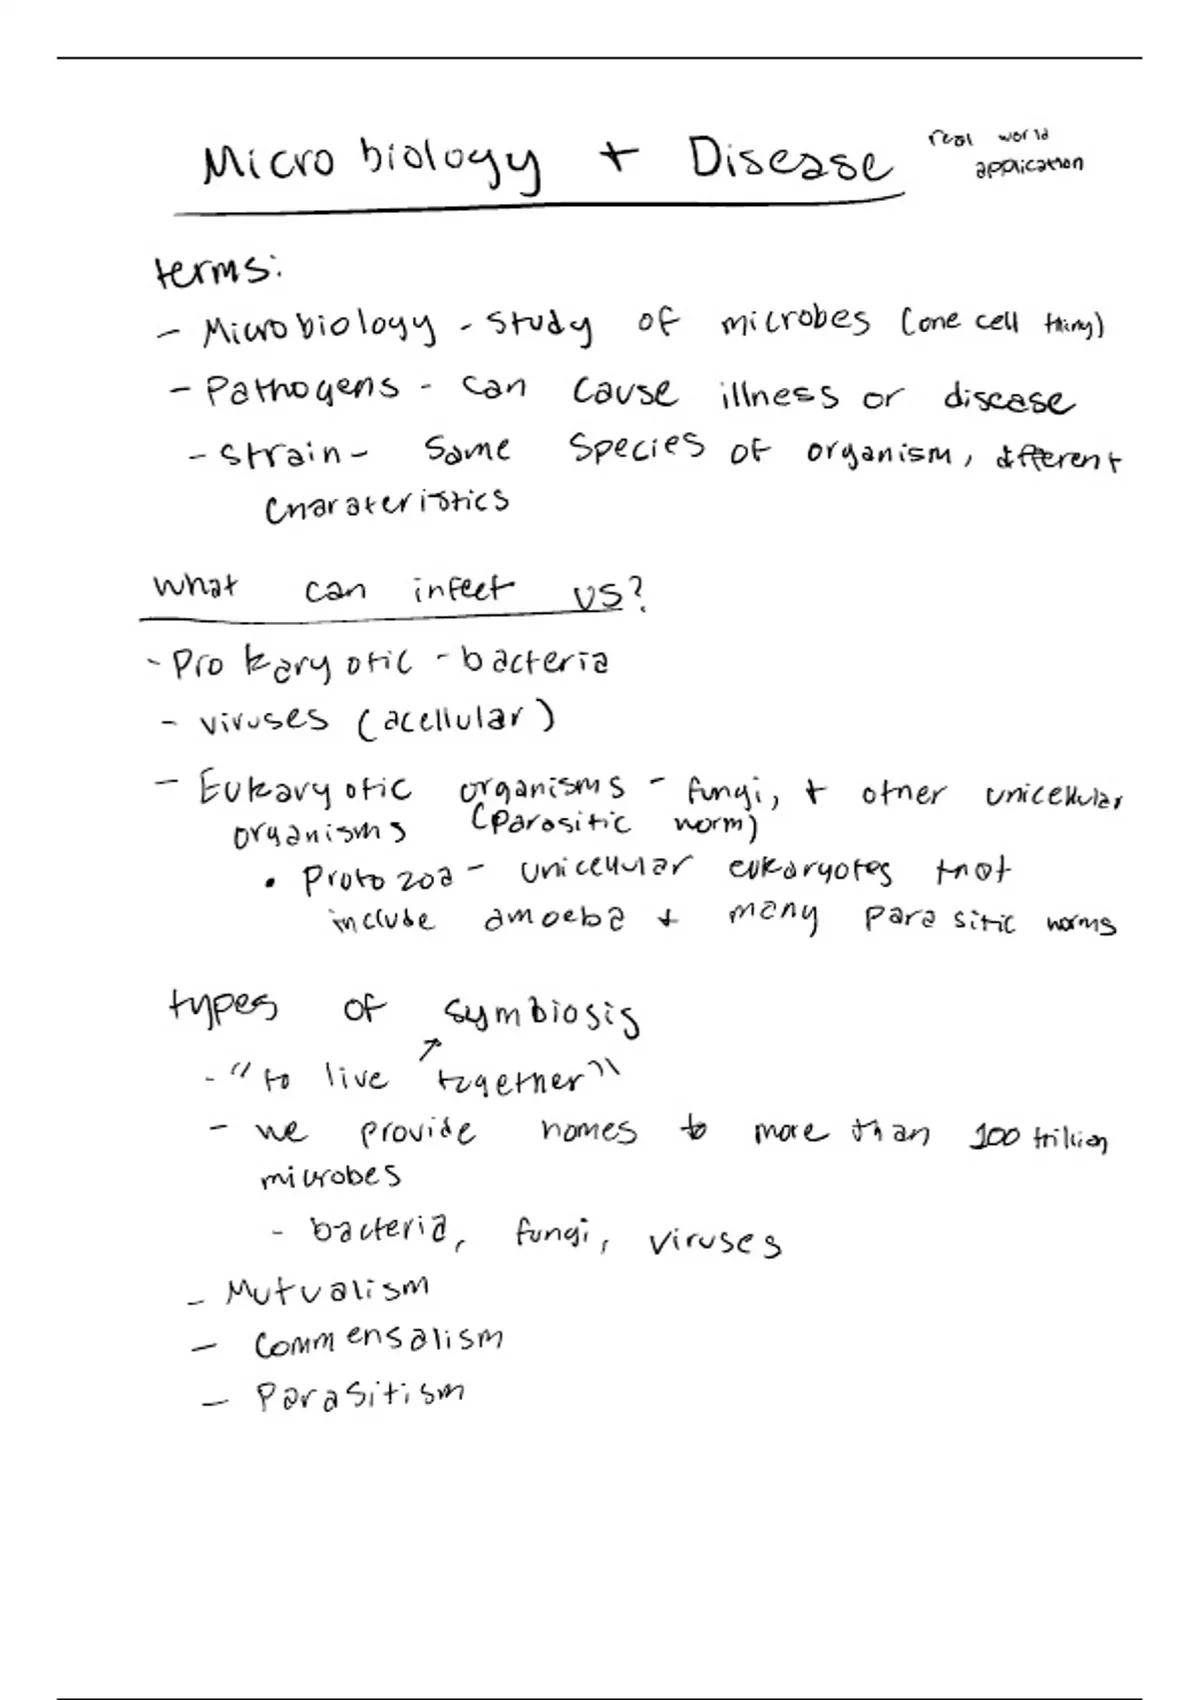 Microbiology + Disease real world
application
terms:
- Microbiology - study of microbes (one cell thing)
- Pathogens - can cause illness or disease
- Strain - Same species of organism, different
charateristics
what can infect us?
- Prokaryotic - bacteria
- viruses (acellular)
- Eukaryotic organisms - fungi, + other unicellular
organisms (parasitic worm)
• Protozoa - unicellular eukaryotes that
include amoeba + many parasitic worms
types of symbiosis
- "to live together"
- we provide homes to more than 100 trillion
microbes
- bacteria, fungi, viruses
- Mutualism
- Commensalism
- Parasitism